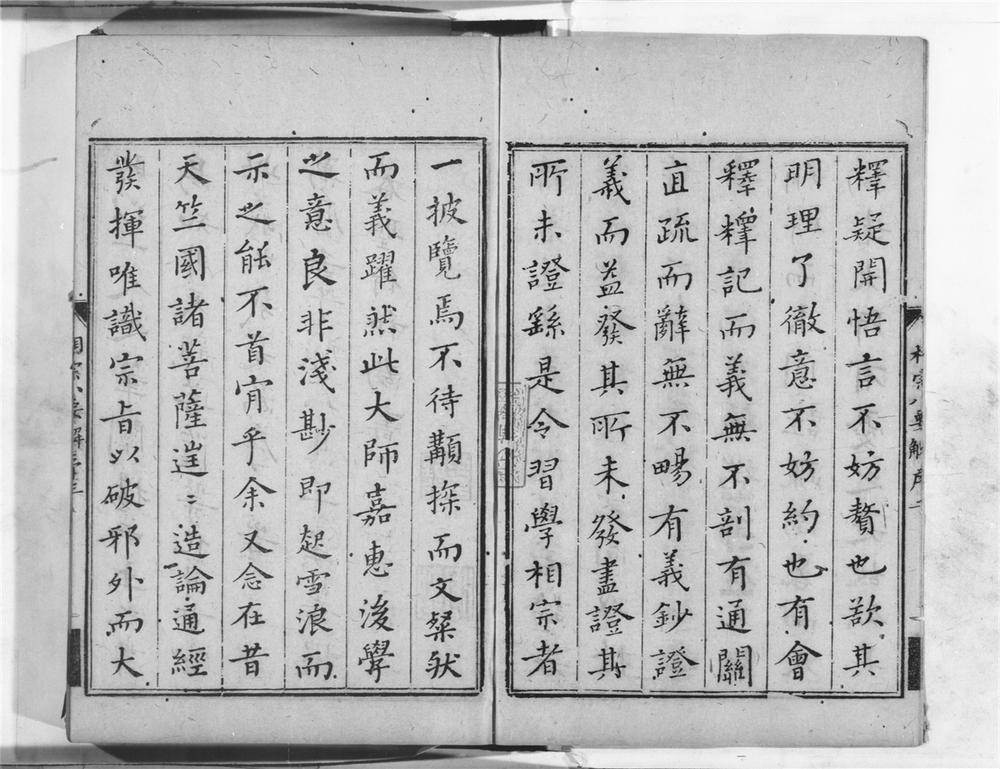 釋疑開悟言不妨贅也欲其
明理了徹意不妨約也有會
釋釋記而義無不剖有通關
直疏而辭無不暢有義鈔證
義而益發其所未發盡證其
所未證繇是令習學相宗者
相宗八要解序二
一披覽焉不待覼探而文粲狀
而義躍然此大師嘉惠後學
之意良非淺尠即起雪浪而
示之能不首肯乎余又念在昔
天竺國諸菩薩往往造論通經
發揮唯識宗旨以破邪外而大
相宗八要解序三